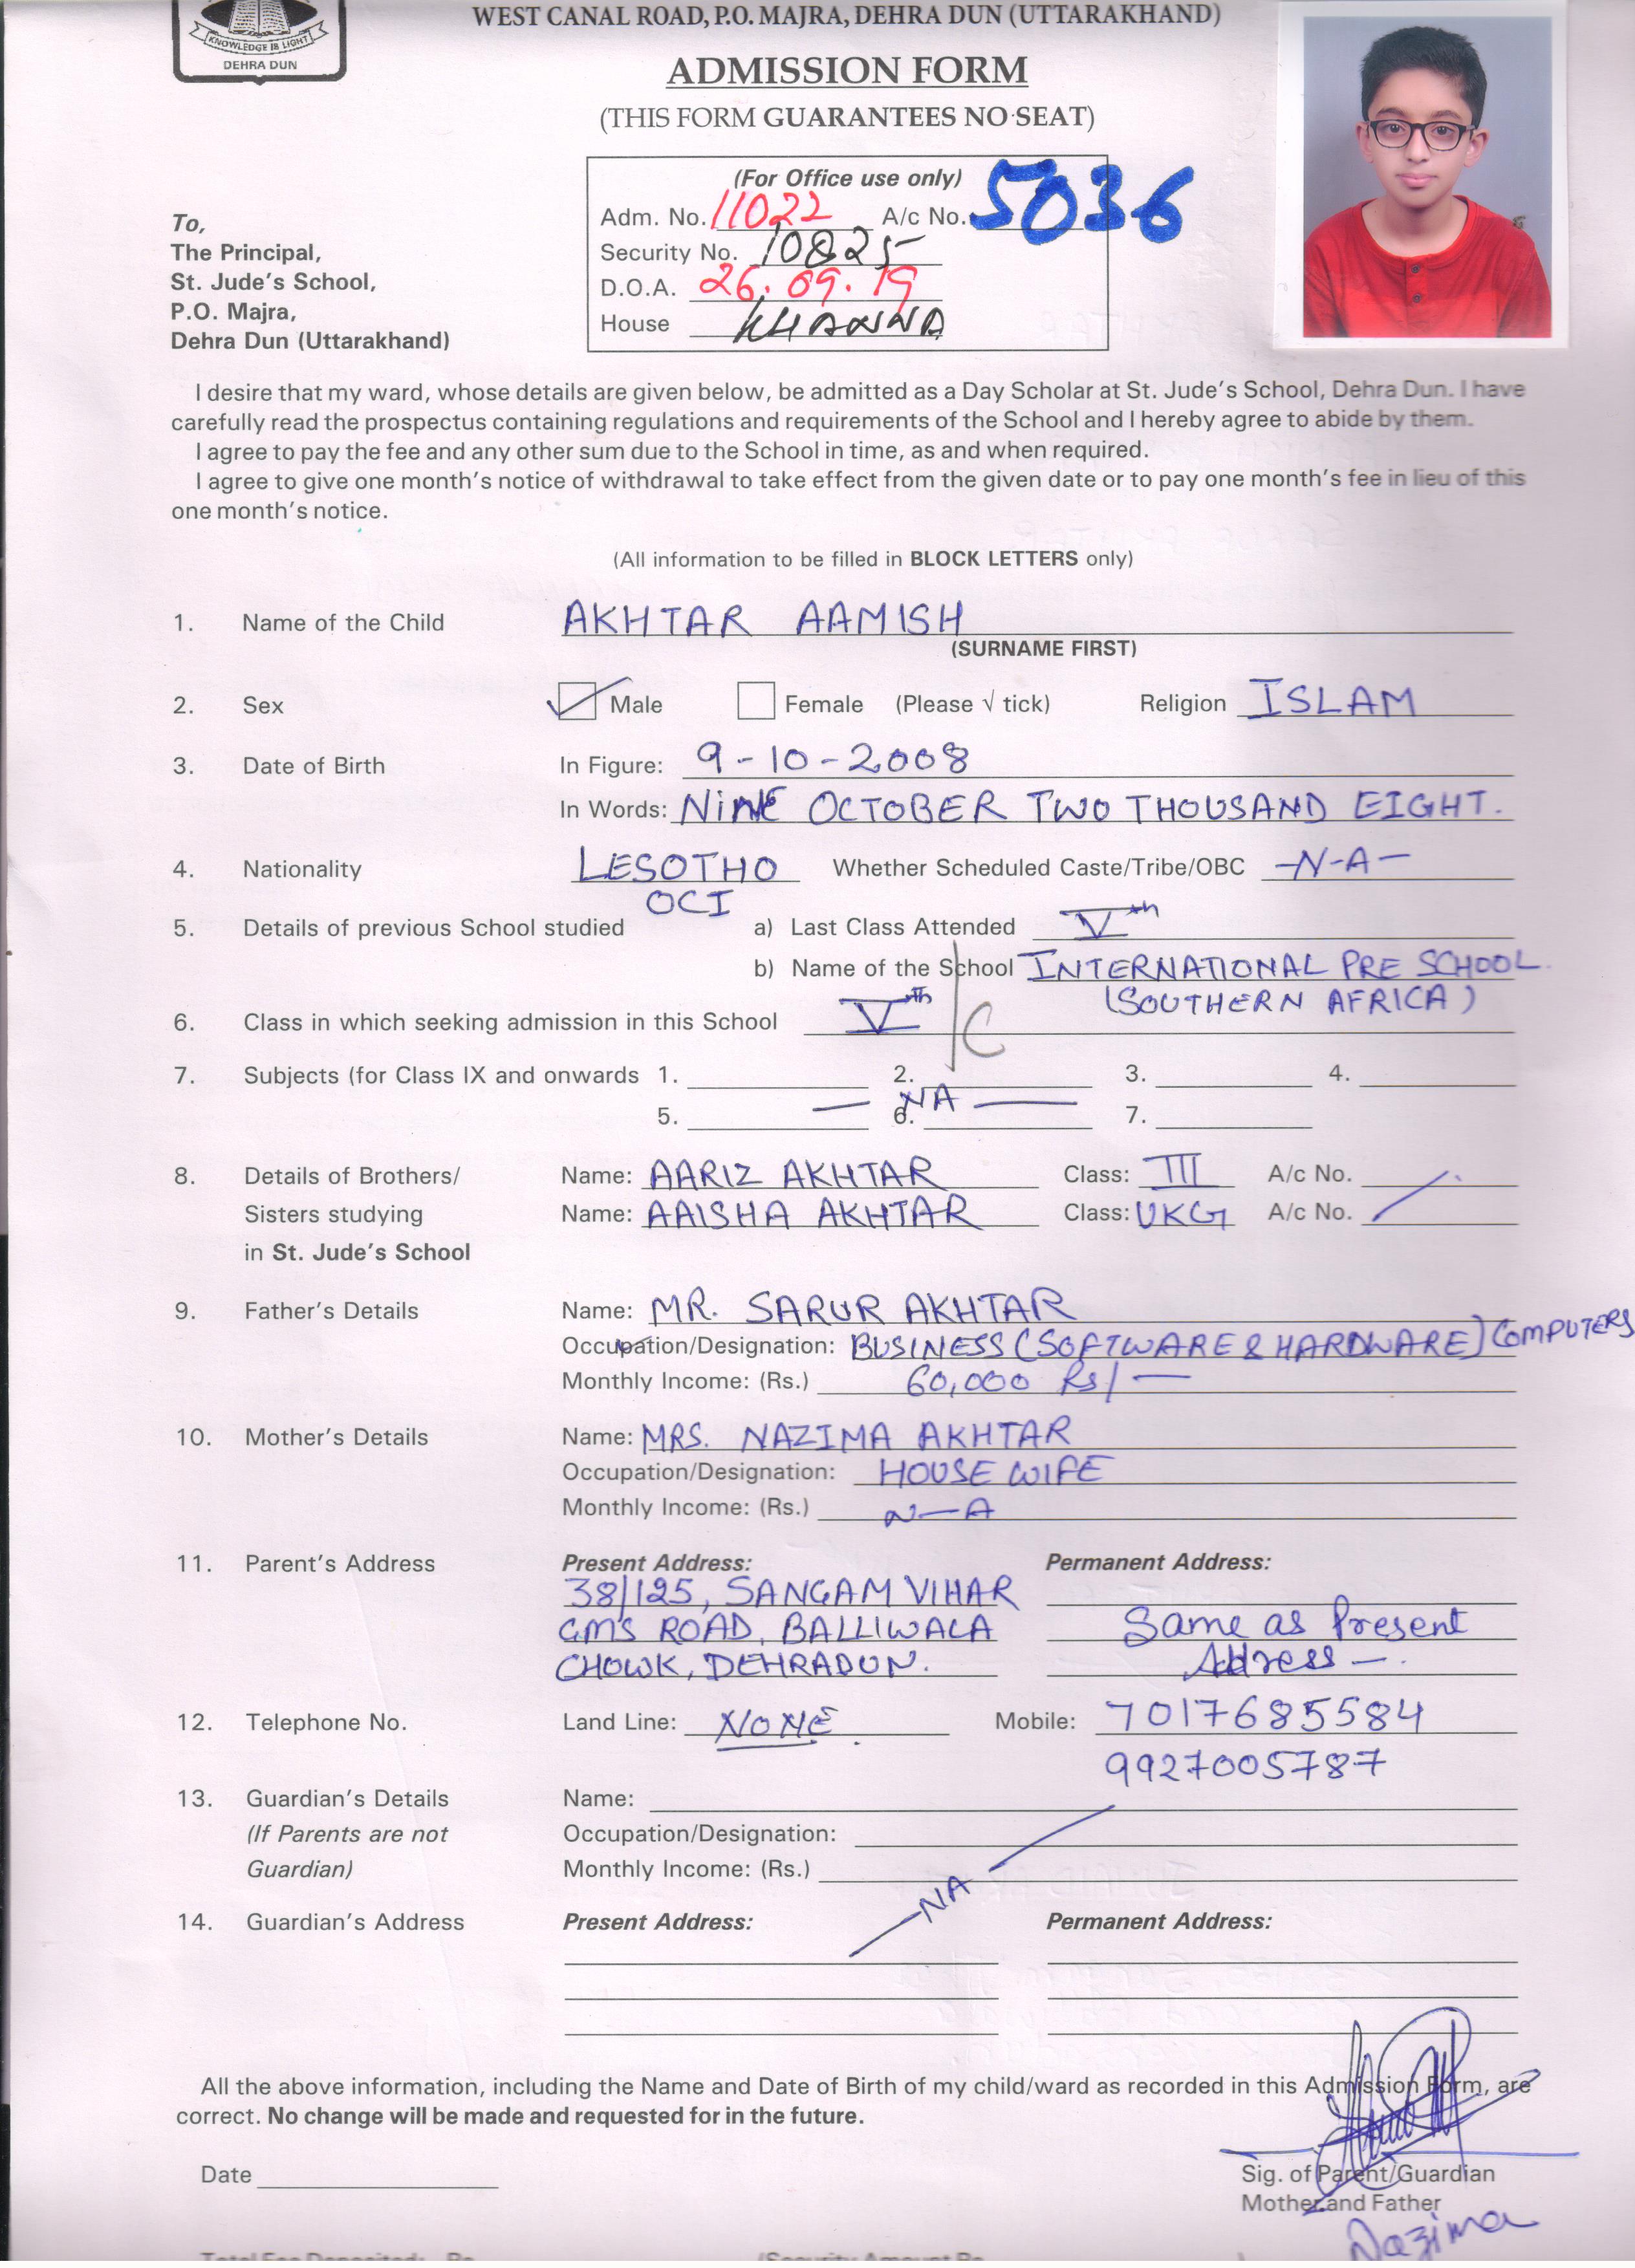 WEST CANAL ROAD, P.O. MAJRA, DEHRA DUN (UTTARAKHAND)
KNOWLEDGE IS LIGHT
DEHRA DUN
ADMISSION FORM
(THIS FORM GUARANTEES NO SEAT)
(For Office use only)
Adm. No. 11022 A/c No. 5036
Security No. 10825
D.O.A. 26.09.19
House KHANNA
To,
The Principal,
St. Jude's School,
P.O. Majra,
Dehra Dun (Uttarakhand)
I desire that my ward, whose details are given below, be admitted as a Day Scholar at St. Jude's School, Dehra Dun. I have
carefully read the prospectus containing regulations and requirements of the School and I hereby agree to abide by them.
I agree to pay the fee and any other sum due to the School in time, as and when required.
I agree to give one month's notice of withdrawal to take effect from the given date or to pay one month's fee in lieu of this
one month's notice.
(All information to be filled in BLOCK LETTERS only)
1. Name of the Child AKHTAR AAMISH
(SURNAME FIRST)
2. Sex Male Female (Please √ tick) Religion ISLAM
3. Date of Birth In Figure: 9-10-2008
In Words: NINE OCTOBER TWO THOUSAND EIGHT.
4. Nationality LESOTHO Whether Scheduled Caste/Tribe/OBC -N-A-
OCI
5. Details of previous School studied a) Last Class Attended Vth
b) Name of the School INTERNATIONAL PRE SCHOOL.
(SOUTHERN AFRICA)
6. Class in which seeking admission in this School Vth C
7. Subjects (for Class IX and onwards 1. 2. 3. 4.
— NA —
5. 6. 7.
8. Details of Brothers/ Name: AARIZ AKHTAR Class: III A/c No.
Sisters studying Name: AAISHA AKHTAR Class: UKG A/c No.
in St. Jude's School
9. Father's Details Name: MR. SARUR AKHTAR
Occupation/Designation: BUSINESS (SOFTWARE & HARDWARE) COMPUTERS
Monthly Income: (Rs.) 60,000 Rs/—
10. Mother's Details Name: MRS. NAZIMA AKHTAR
Occupation/Designation: HOUSE WIFE
Monthly Income: (Rs.) N—A
11. Parent's Address Present Address: Permanent Address:
38/125, SANGAM VIHAR
GMS ROAD, BALLIWALA Same as Present
CHOWK, DEHRADUN. Address —.
12. Telephone No. Land Line: NONE. Mobile: 7017685584
9927005787
13. Guardian's Details Name:
(If Parents are not Occupation/Designation:
Guardian) Monthly Income: (Rs.)
NA
14. Guardian's Address Present Address: Permanent Address:
All the above information, including the Name and Date of Birth of my child/ward as recorded in this Admission Form, are
correct. No change will be made and requested for in the future.
Date
Sig. of Parent/Guardian
Mother and Father
Nazima